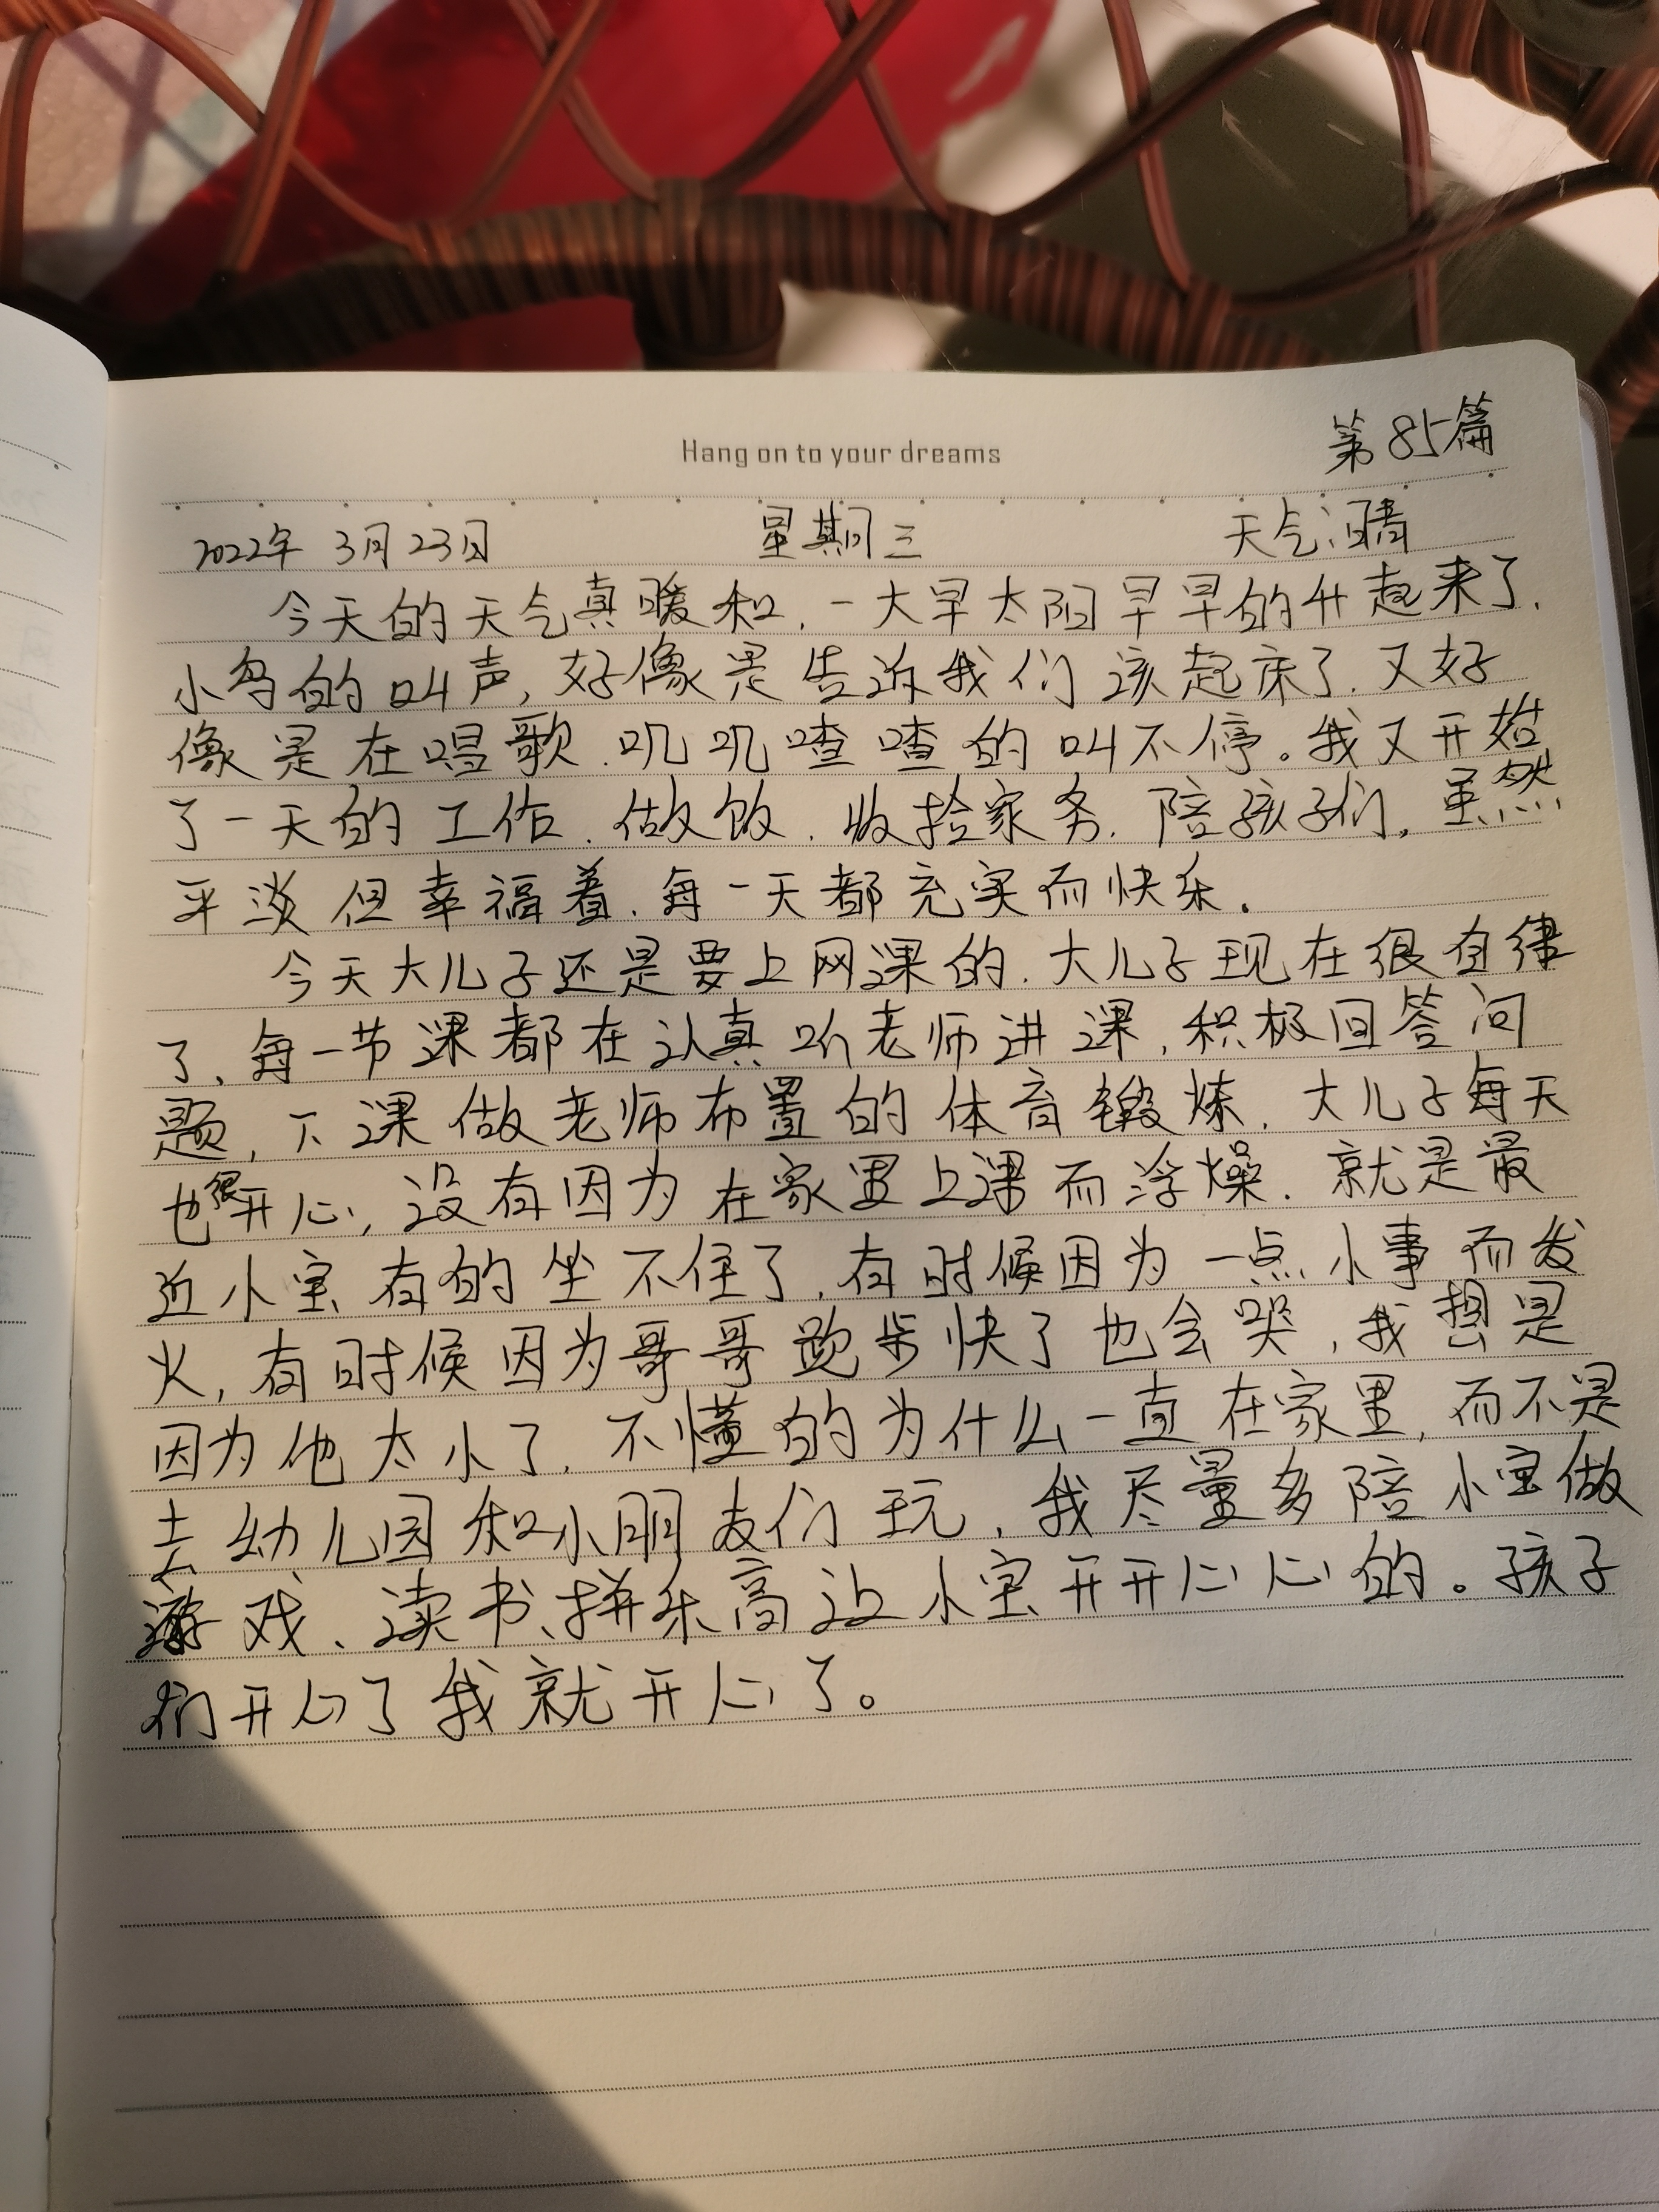 Hang on to your dreams
第85篇
2022年 3月23日 星期三 天气:晴
今天的天气真暖和，一大早太阳早早的升起来了，
小鸟的叫声，好像是告诉我们该起床了，又好
像是在唱歌，叽叽喳喳的叫不停。我又开始
了一天的工作，做饭，收拾家务，陪孩子们，虽然
平淡但幸福着，每一天都充实而快乐。
今天大儿子还是要上网课的，大儿子现在很自律
了，每一节课都在认真听老师讲课，积极回答问
题，下课做老师布置的体育锻炼，大儿子每天
也很开心，没有因为在家里上课而浮燥，就是最
近小宝有的坐不住了，有时候因为一点小事而发
火，有时候因为哥哥跑步快了也会哭，我想是
因为他太小了，不懂的为什么一直在家里，而不是
去幼儿园和小朋友们玩，我尽量多陪小宝做
游戏、读书、拼乐高让小宝开开心心的。孩子
们开心了我就开心了。